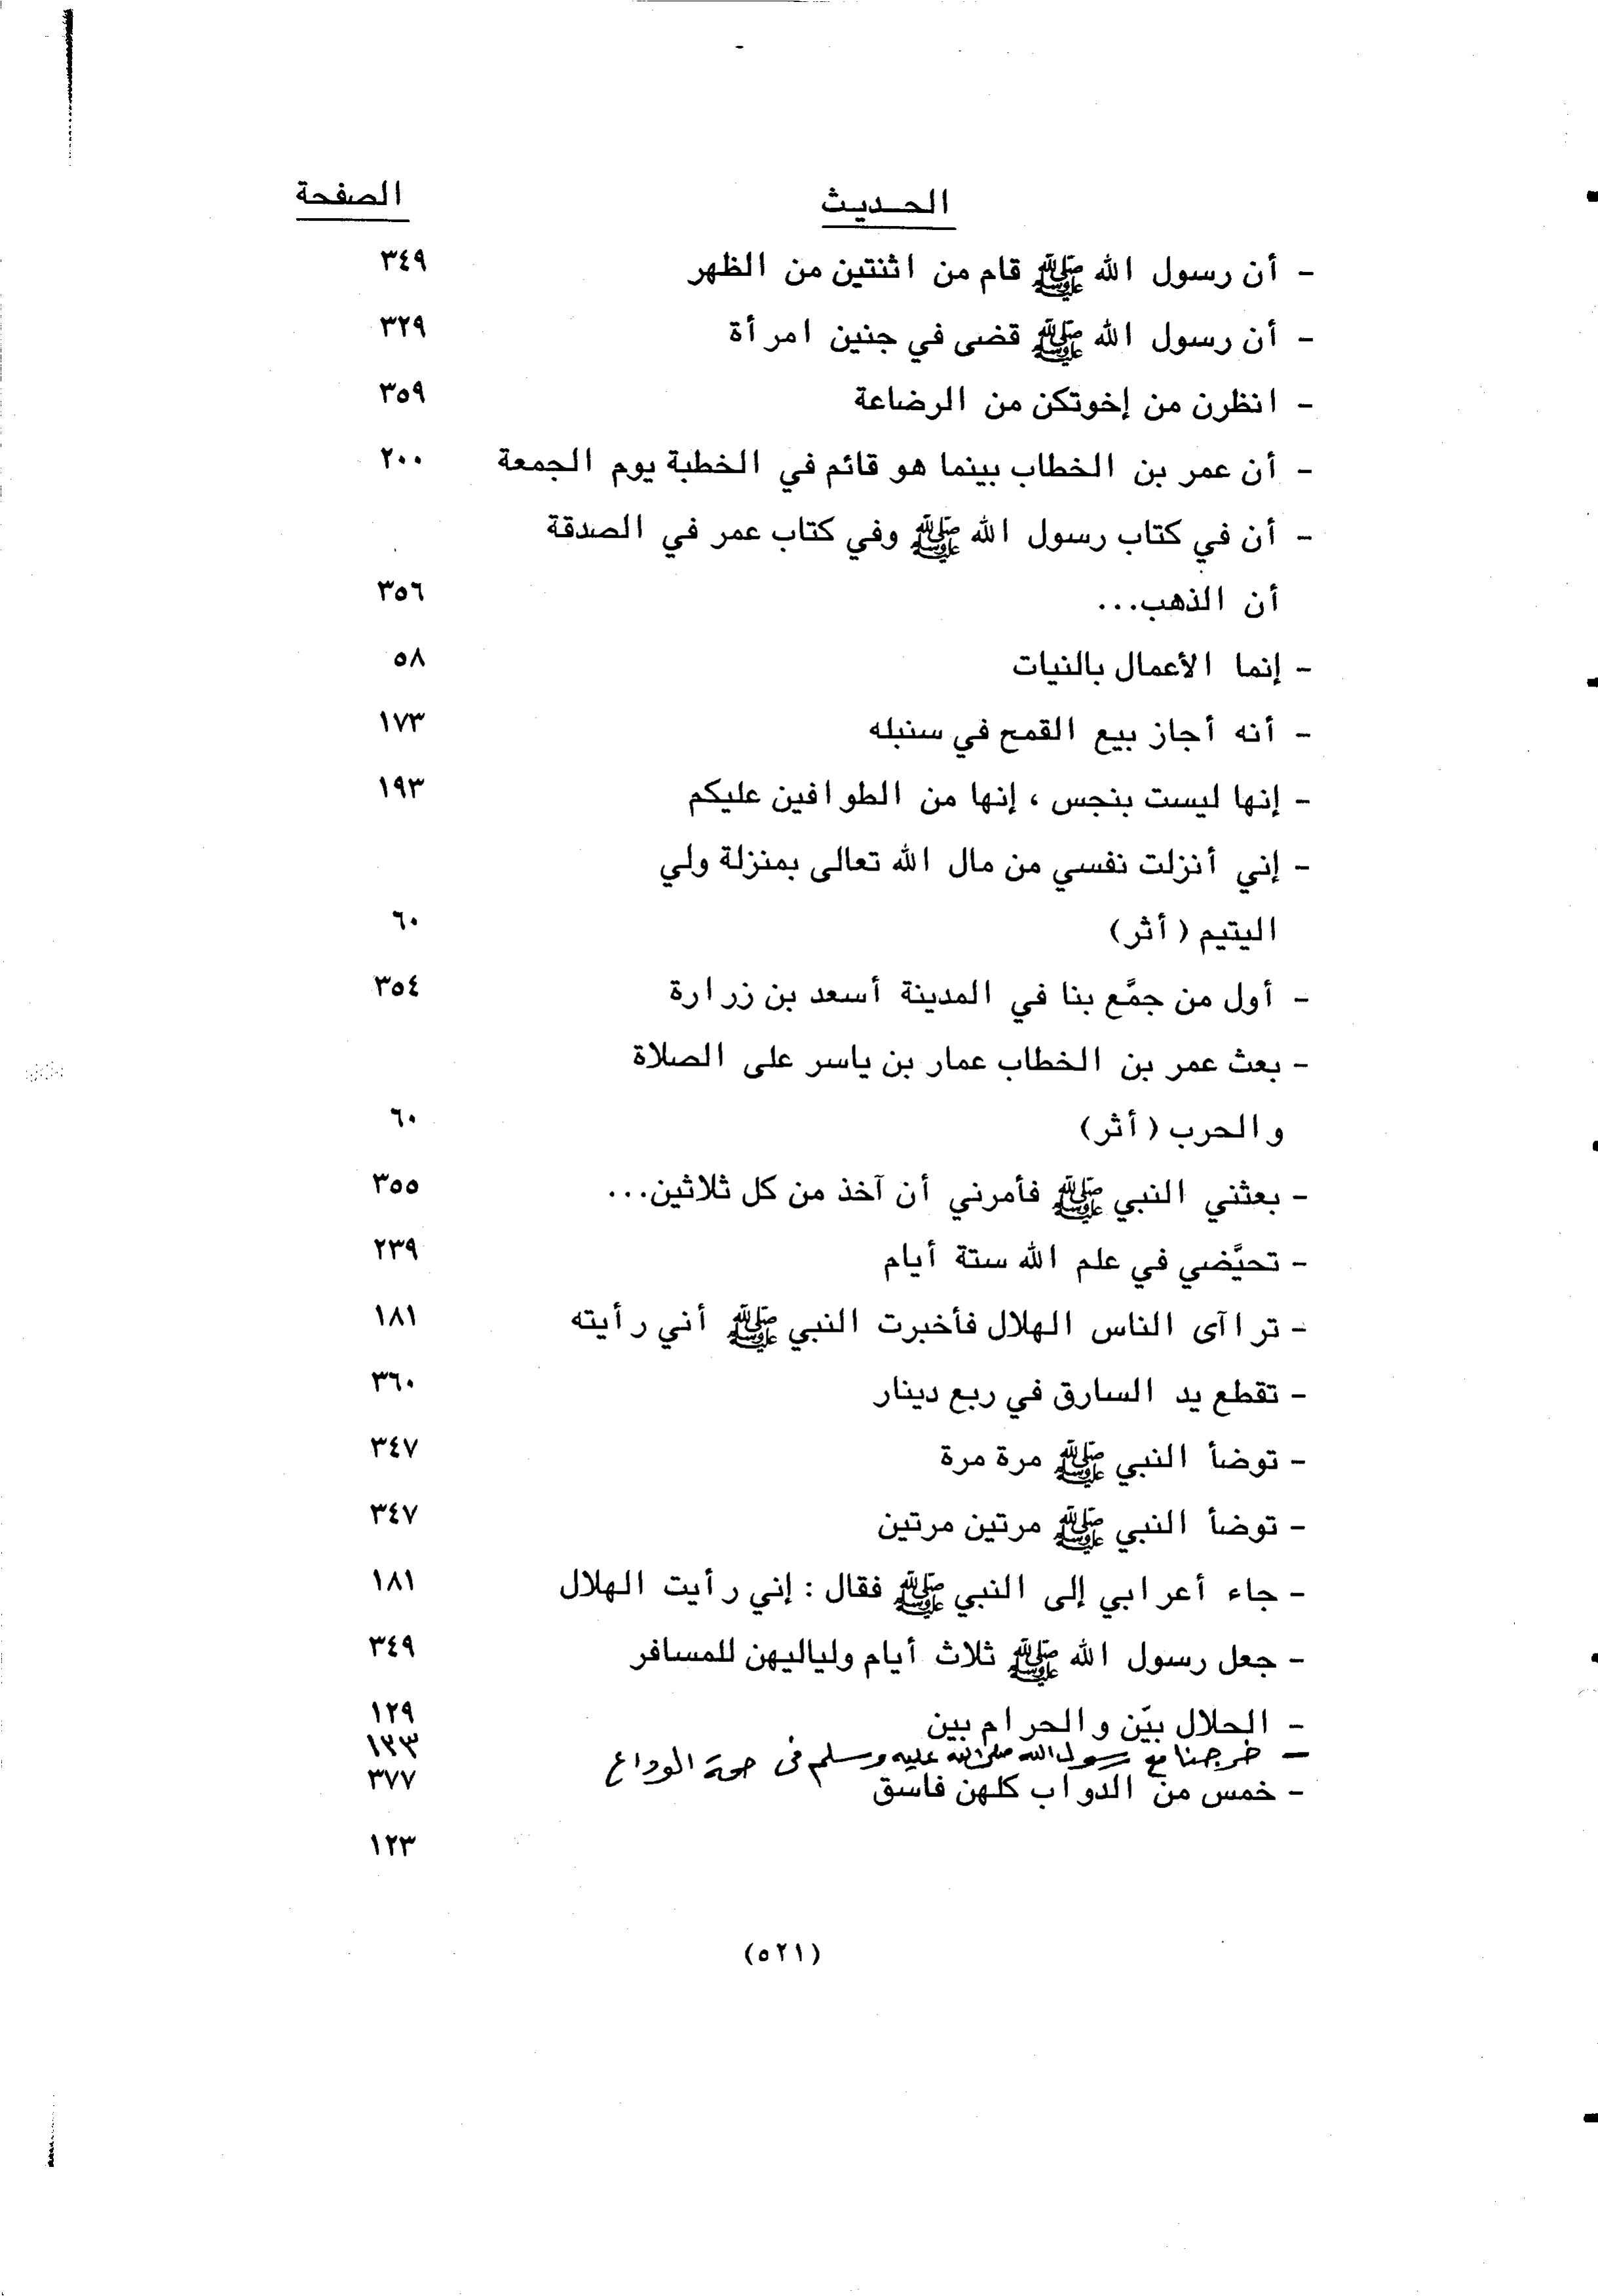 الحديث الصفحة
- أن رسول الله ﷺ قام من اثنتين من الظهر ٣٤٩
- أن رسول الله ﷺ قضى في جنين امرأة ٣٢٩
- انظرن من إخوتكن من الرضاعة ٣٥٩
- أن عمر بن الخطاب بينما هو قائم في الخطبة يوم الجمعة ٢٠٠
- أن في كتاب رسول الله ﷺ وفي كتاب عمر في الصدقة
أن الذهب... ٣٥٦
- إنما الأعمال بالنيات ٥٨
- أنه أجاز بيع القمح في سنبله ١٧٣
- إنها ليست بنجس ، إنها من الطوافين عليكم ١٩٣
- إني أنزلت نفسي من مال الله تعالى بمنزلة ولي
اليتيم (أثر) ٦٠
- أول من جمَّع بنا في المدينة أسعد بن زرارة ٣٥٤
- بعث عمر بن الخطاب عمار بن ياسر على الصلاة
والحرب (أثر) ٦٠
- بعثني النبي ﷺ فأمرني أن آخذ من كل ثلاثين... ٣٥٥
- تحيَّضي في علم الله ستة أيام ٢٣٩
- تراآى الناس الهلال فأخبرت النبي ﷺ أني رأيته ١٨١
- تقطع يد السارق في ربع دينار ٣٦٠
- توضأ النبي ﷺ مرة مرة ٣٤٧
- توضأ النبي ﷺ مرتين مرتين ٣٤٧
- جاء أعرابي إلى النبي ﷺ فقال : إني رأيت الهلال ١٨١
- جعل رسول الله ﷺ ثلاث أيام ولياليهن للمسافر ٣٤٩
- الحلال بيّن والحرام بين ١٢٩
- خرجنا مع رسول الله صلى الله عليه وسلم في حجة الوداع
- خمس من الدواب كلهن فاسق ٣٧٧
١٢٣
(٥٢١)